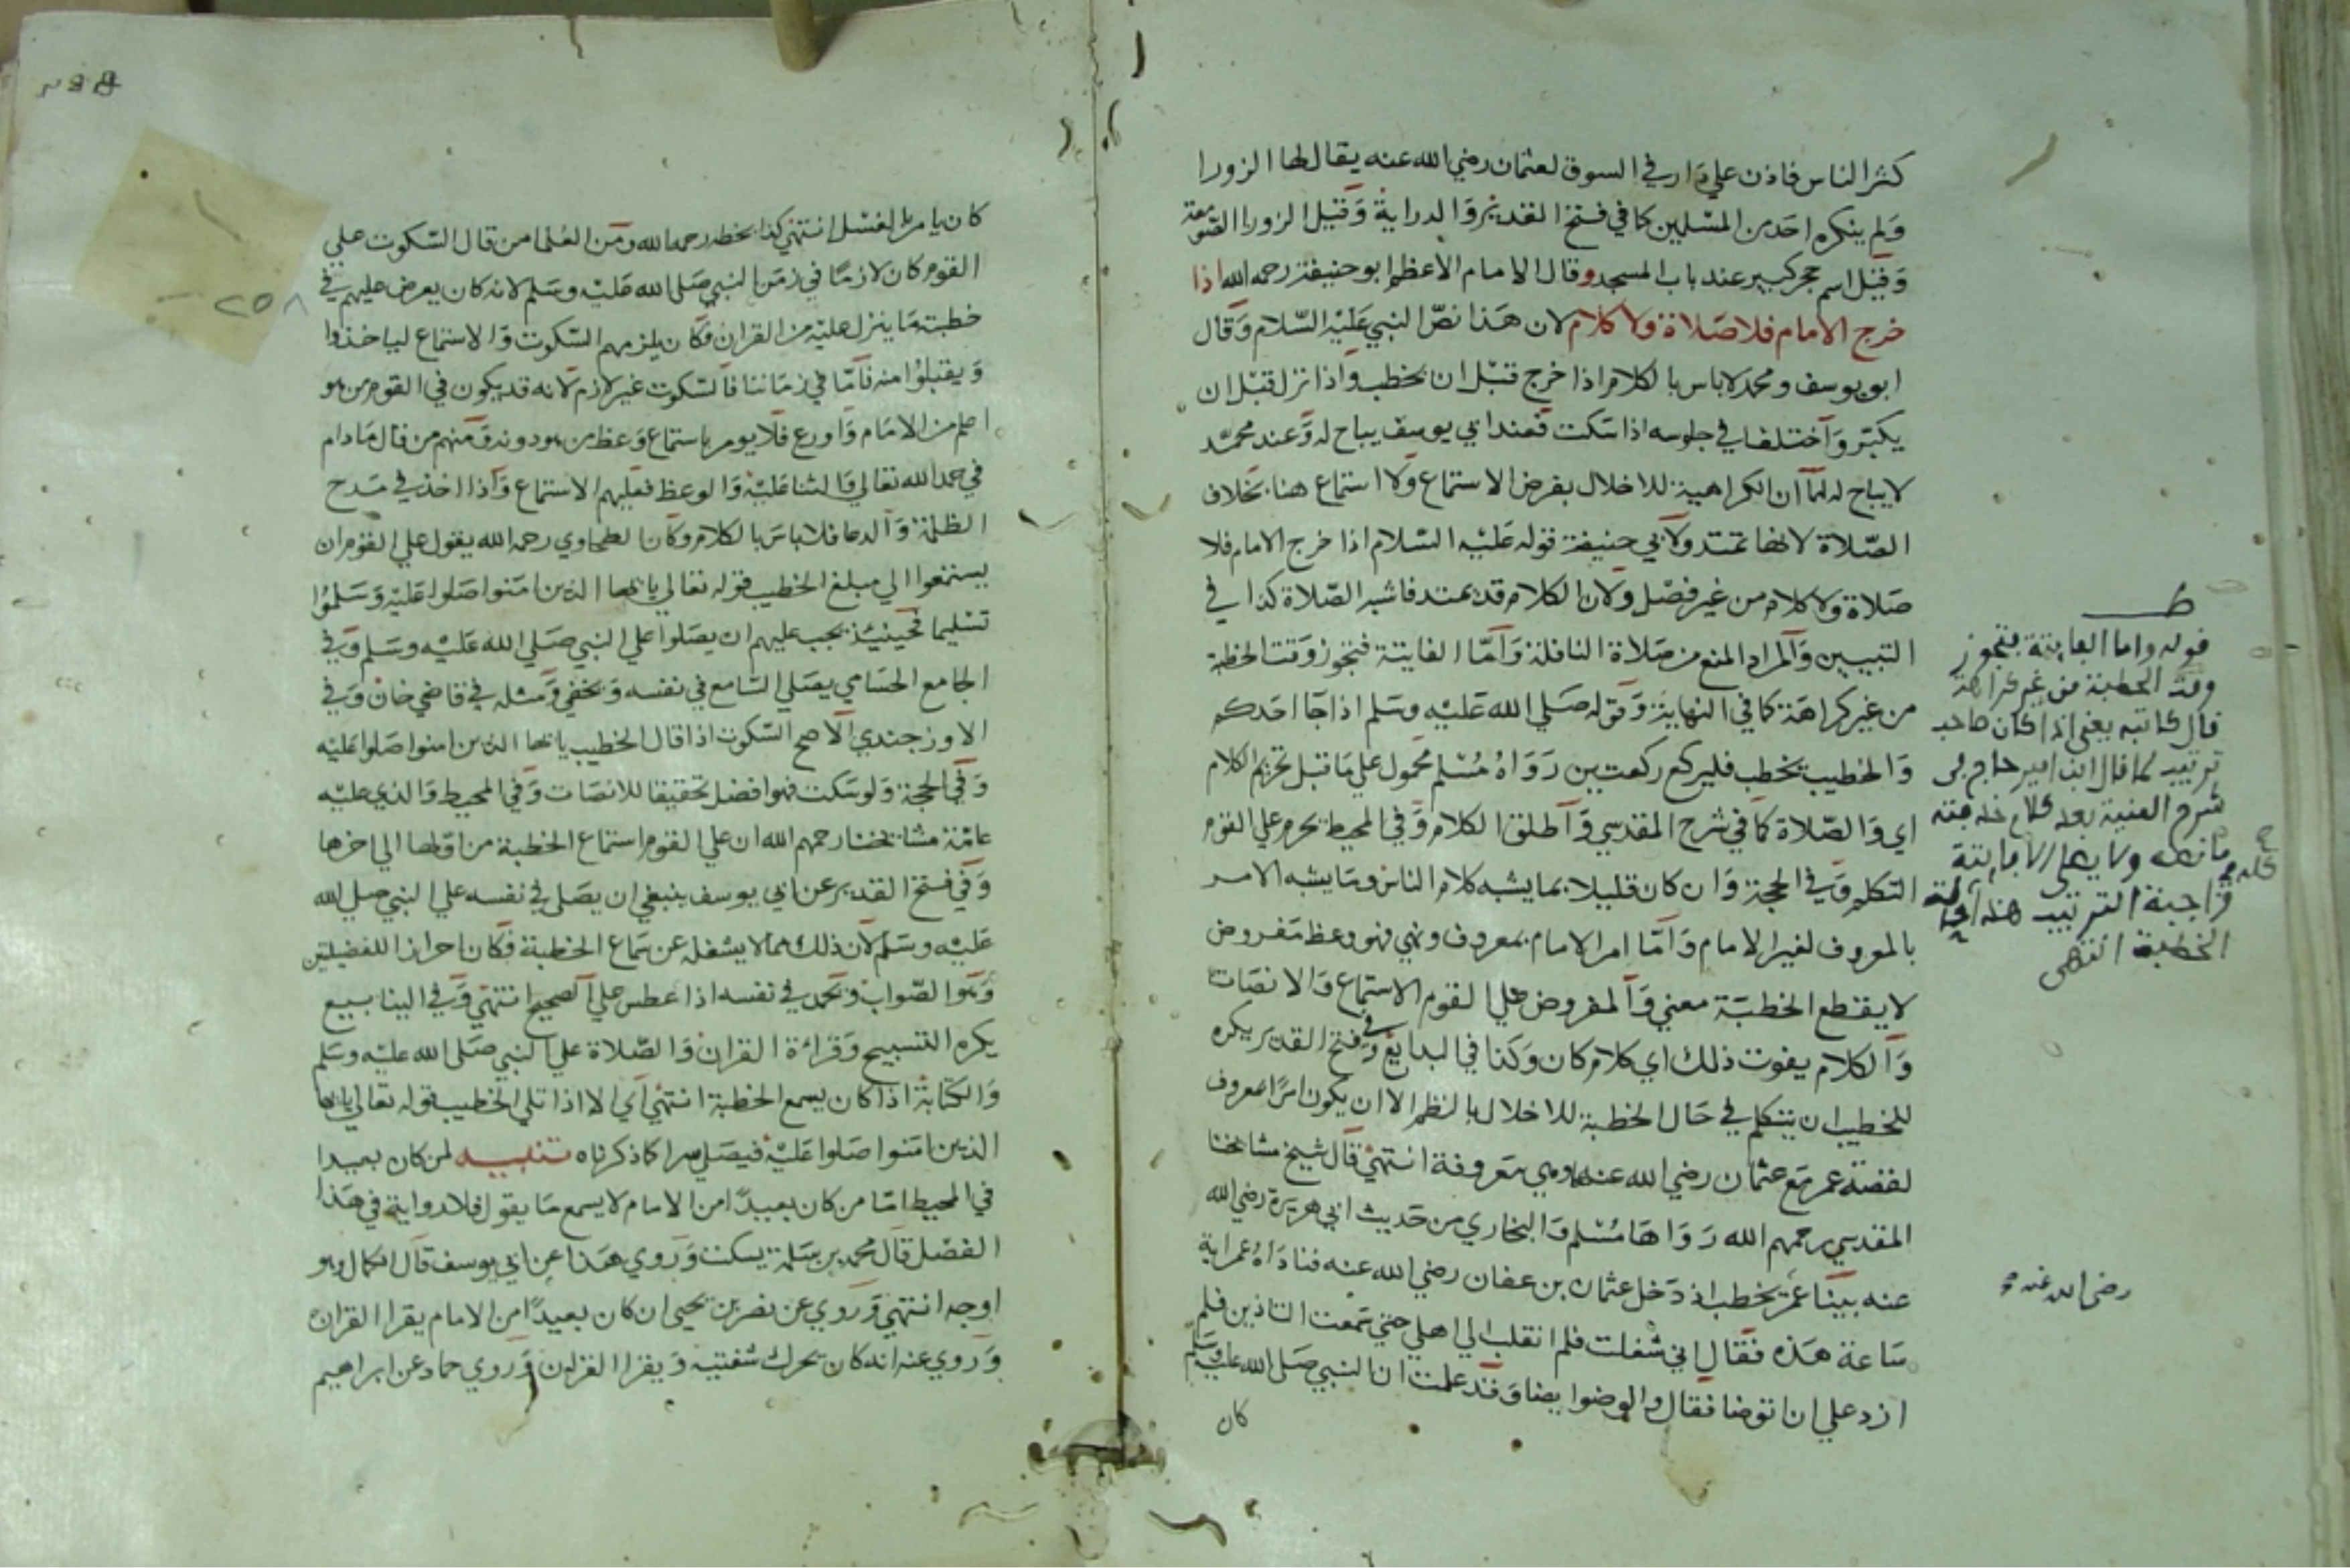 كثر الناس فاذن علي دار في السوق لعثمان رضي الله عنه يقال لها الزورا
ولم ينكره احد من المسلمين كما في فتح القدير والدراية وقيل الزورا الصومعة
وقيل اسم حجر كبير عند باب المسجد وقال الامام الاعظم ابو حنيفة رحمه الله اذا
خرج الامام فلا صلاة ولا كلام لان هذا نص النبي عليه السلام وقال
ابو يوسف ومحمد لا باس بالكلام اذا خرج قبل ان يخطب واذا نزل قبل ان
يكبر واختلفا في جلوسه اذا سكت فعند ابي يوسف يباح له وعند محمد
لا يباح له لهما ان الكراهية للاخلال بفرض الاستماع ولا استماع هنا بخلاف
الصلاة لانها تمتد ولابي حنيفة قوله عليه السلام اذا خرج الامام فلا
صلاة ولا كلام من غير فصل ولان الكلام قد يمتد فاشبه الصلاة كذا في
التبيين والمراد المنع من صلاة النافلة واما الفايتة فتجوز وقت الخطبة
من غير كراهة كما في النهاية وقوله صلي الله عليه وسلم اذا جا احدكم
والخطيب يخطب فليركع ركعتين رواه مسلم محمول علي ما قبل تحريم الكلام
اي والصلاة كما في شرح المقدسي واطلق الكلام وفي المحيط يحرم علي القوم
التكلم وفي الحجة وان كان قليلا بما يشبه كلام الناس وما يشبه الامر
بالمعروف لغير الامام واما امر الامام بمعروف ونهي فهو وعظ مفروض
لا يقطع الخطبة معني والمفروض علي القوم الاستماع والانصات
والكلام يفوت ذلك اي كلام كان وكذا في البدايع وفي فتح القدير يكره
للخطيب ان يتكلم في حال الخطبة للاخلال بالنظم الا ان يكون امرا بمعروف
لقصة عمر مع عثمان رضي الله عنه وهي معروفة انتهي قال شيخ مشايخنا
المقدسي رحمهم الله رواها مسلم والبخاري من حديث ابي هريرة رضي الله
عنه بينا عمر يخطب اذ دخل عثمان بن عفان رضي الله عنه فناداه عمر اية
ساعة هذه فقال اني شغلت فلم انقلب الي اهلي حتي سمعت التاذين فلم
ازد علي ان توضا فقال والوضوا يضا وقد علمت ان النبي صلي الله عليه وسلم
كان
ط
قوله واما الفايتة فتجوز
وقت الخطبة من غير كراهة
قال كاتبه يعني اذا كان صاحب
ترتيب كما قال ابن امير حاج في
شرح المنية
الا فايتة
واجبة الترتيب هذه
الخطبة انتهى
رضي الله عنه
كان يامر بالغسل انتهي كذا بخطه رحمه الله ومن العلما من قال السكوت علي
القوم كان لازما في زمن النبي صلي الله عليه وسلم لانه كان يعرض عليهم في
خطبته ما ينزل عليه من القران فكان يلزمهم السكوت والاستماع لياخذوا
ويقبلوا منه فاما في زماننا فالسكوت غير لازم لانه قد يكون في القوم من هو
اعلم من الامام واورع فلا يومر باستماع وعظ من هو دونه ومنهم من قال ما دام
في حمد الله تعالي والثنا عليه والوعظ فعليهم الاستماع واذا اخذ في مدح
الظلمة والدعا فلا باس بالكلام وكان الطحاوي رحمه الله يقول علي القوم ان
يستمعوا الي مبلغ الخطيب قوله تعالي يايها الذين امنوا صلوا عليه وسلموا
تسليما فحينيذ يجب عليهم ان يصلوا علي النبي صلي الله عليه وسلم وفي
الجامع الحسامي يصلي السامع في نفسه ويخفي ومثله في قاضي خان وفي
الاوزجندي الاصح السكوت اذا قال الخطيب يايها الذين امنوا صلوا عليه
وفي الحجة ولو سكت فهو افضل تحقيقا للانصات وفي المحيط والذي عليه
عامة مشايخنا رحمهم الله ان علي القوم استماع الخطبة من اولها الي اخرها
وفي فتح القدير عن ابي يوسف ينبغي ان يصلي في نفسه علي النبي صلي الله
عليه وسلم لان ذلك مما لا يشغله عن سماع الخطبة فكان احرازا للفضيلتين
وهو الصواب ويحمد في نفسه اذا عطس علي الصحيح انتهي وفي الينابيع
يكره التسبيح وقراءة القران والصلاة علي النبي صلي الله عليه وسلم
والكتابة اذا كان يسمع الخطبة انتهي اي الا اذا تلي الخطيب قوله تعالي يايها
الذين امنوا صلوا عليه فيصلي سرا كما ذكرناه تنبيه لمن كان بعيدا
في المحيط اما من كان بعيدا من الامام لا يسمع ما يقول فلا رواية في هذا
الفصل قال محمد بن سلمة يسكت وروي هذا عن ابي يوسف قال الكمال وهو
اوجه انتهي وروي عن نصر بن يحيى ان كان بعيدا من الامام يقرا القران
وروي عنه انه كان يحرك شفتيه ويقرا القران وروي حماد عن ابراهيم
٢٥٨